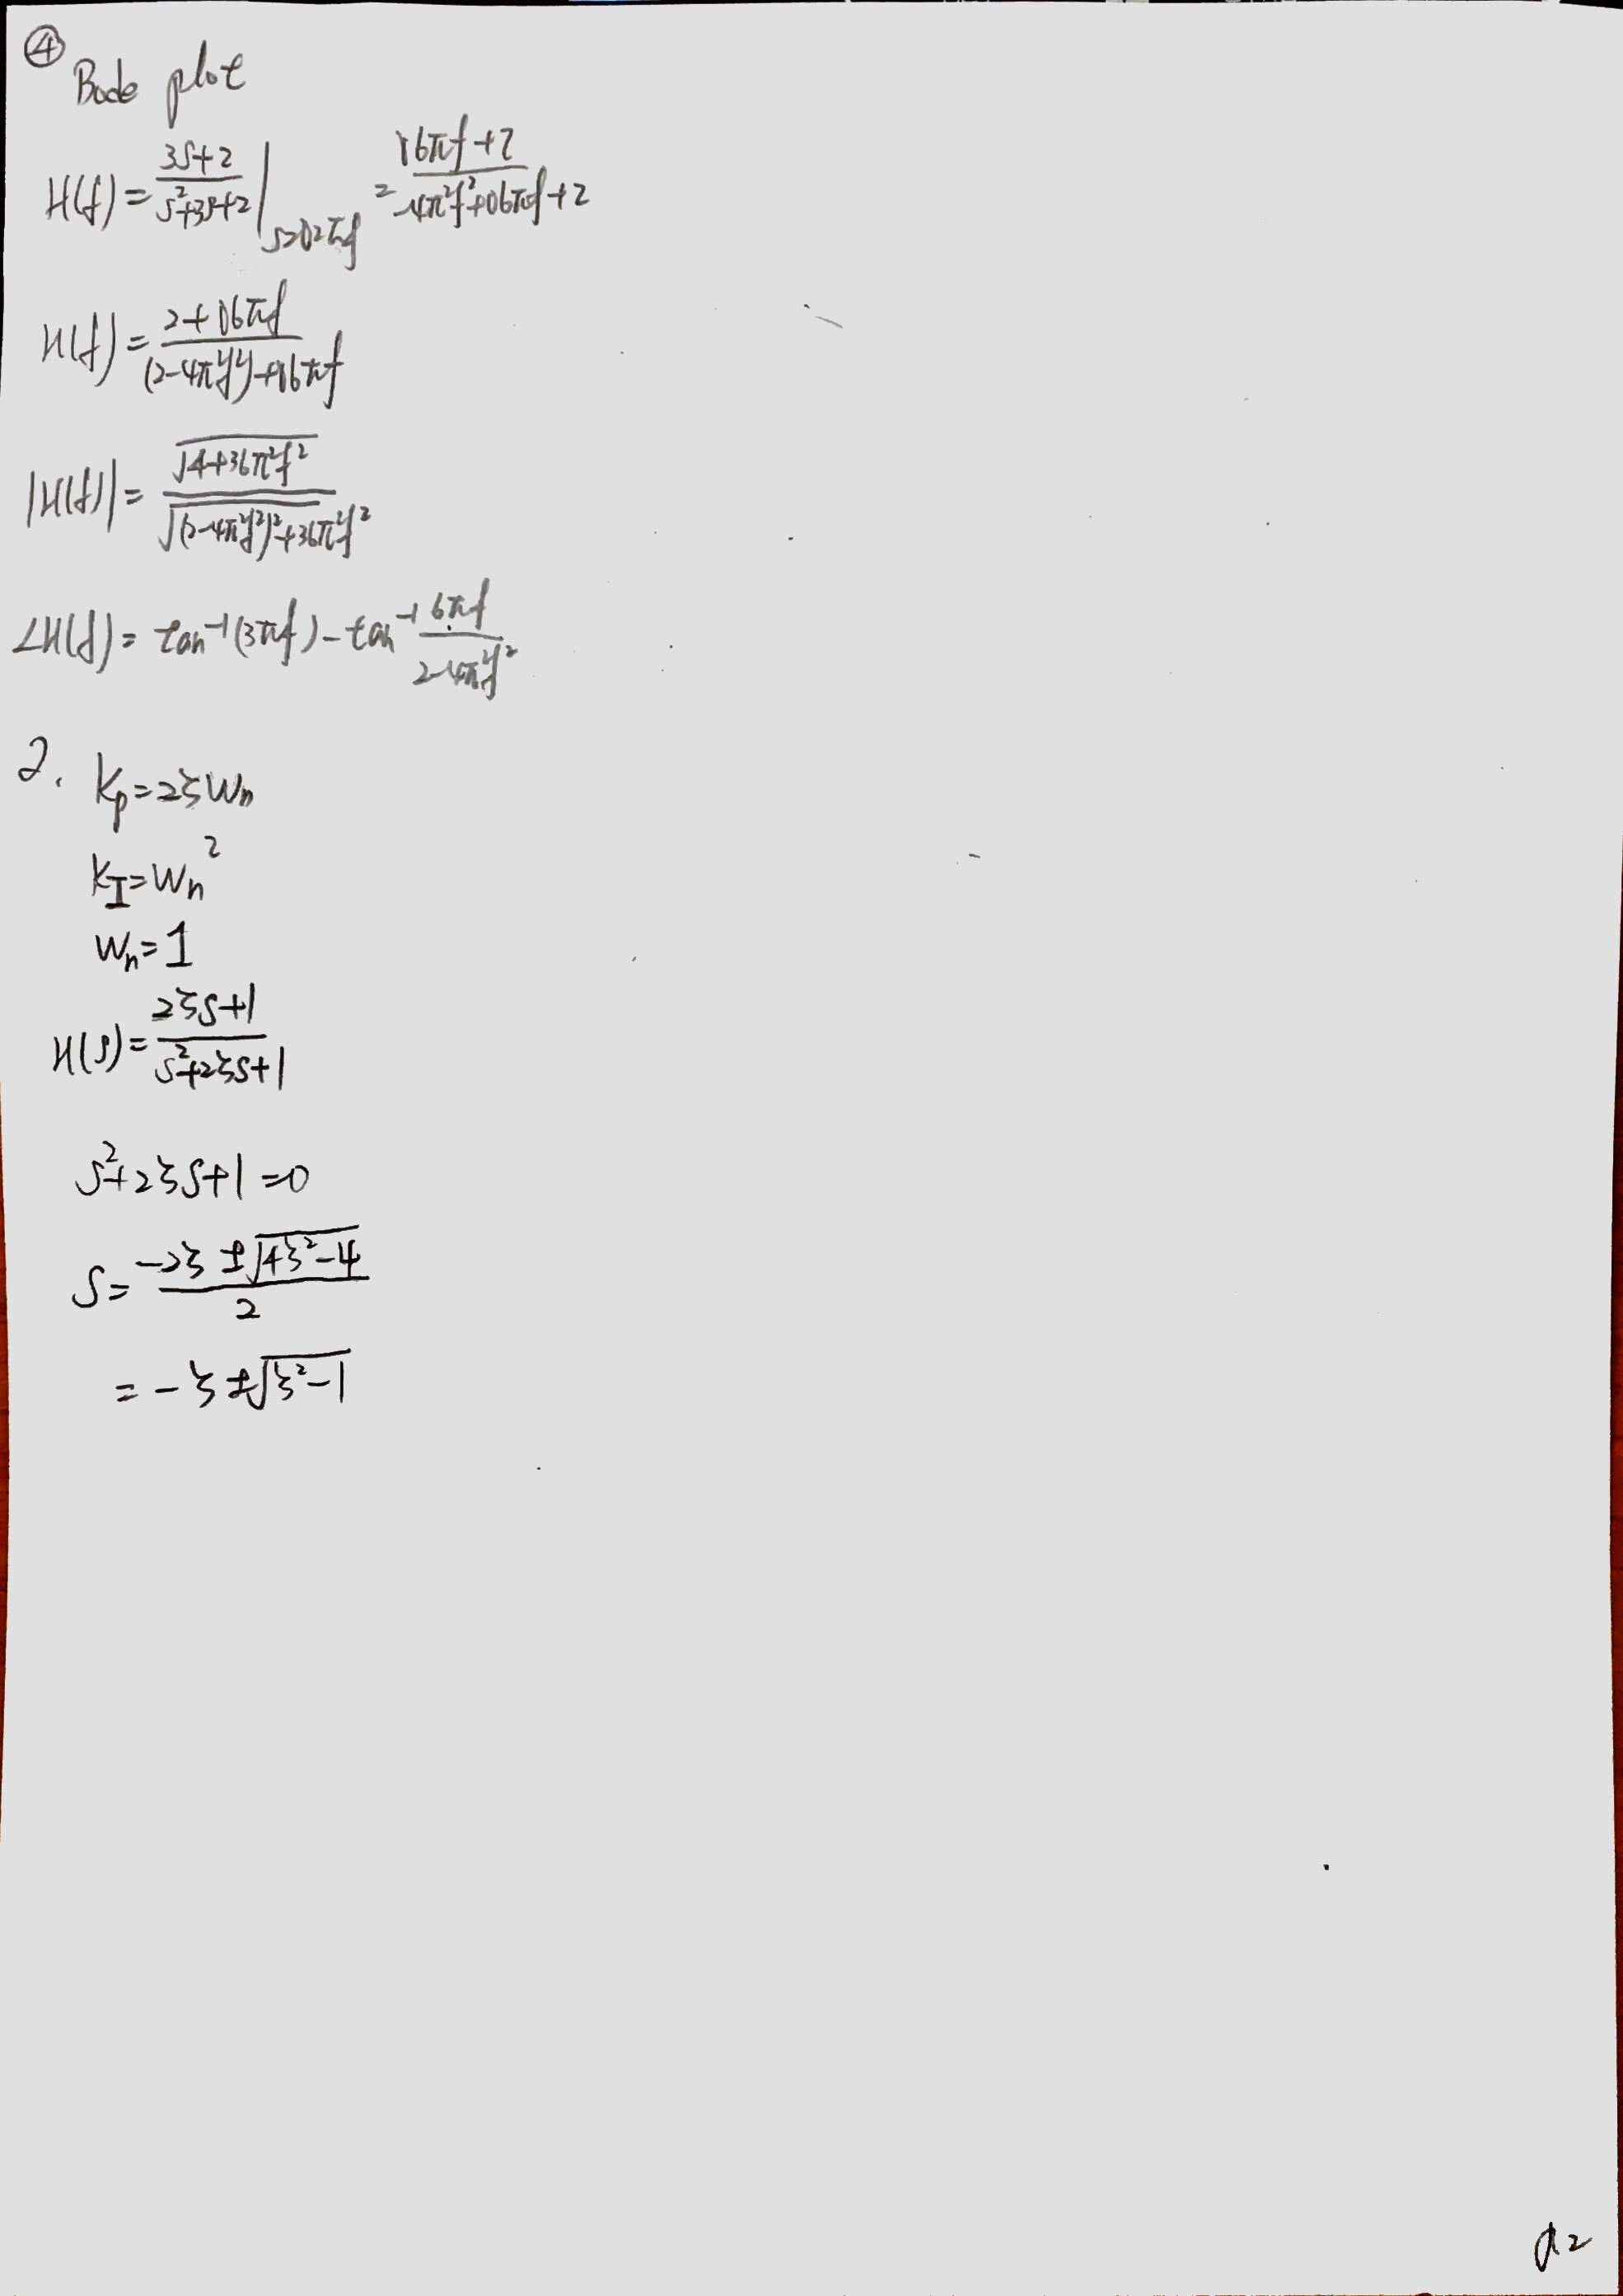 ④
Bode plot
H(f) = (3s+2)/(s²+3s+2) |s=j2πf = (j6πf+2)/(-4π²f²+j6πf+2)
H(f) = (2+j6πf)/((2-4π²f²)+j6πf)
|H(f)| = √(4+36π²f²)/√((2-4π²f²)²+36π²f²)
∠H(f) = tan⁻¹(3πf) - tan⁻¹ 6πf/(2-4π²f²)
2. Kp = 2ζWn
KI = Wn²
Wn = 1
H(s) = (2ζs+1)/(s²+2ζs+1)
s²+2ζs+1 = 0
s = (-2ζ ± √(4ζ²-4))/2
= -ζ ± √(ζ²-1)